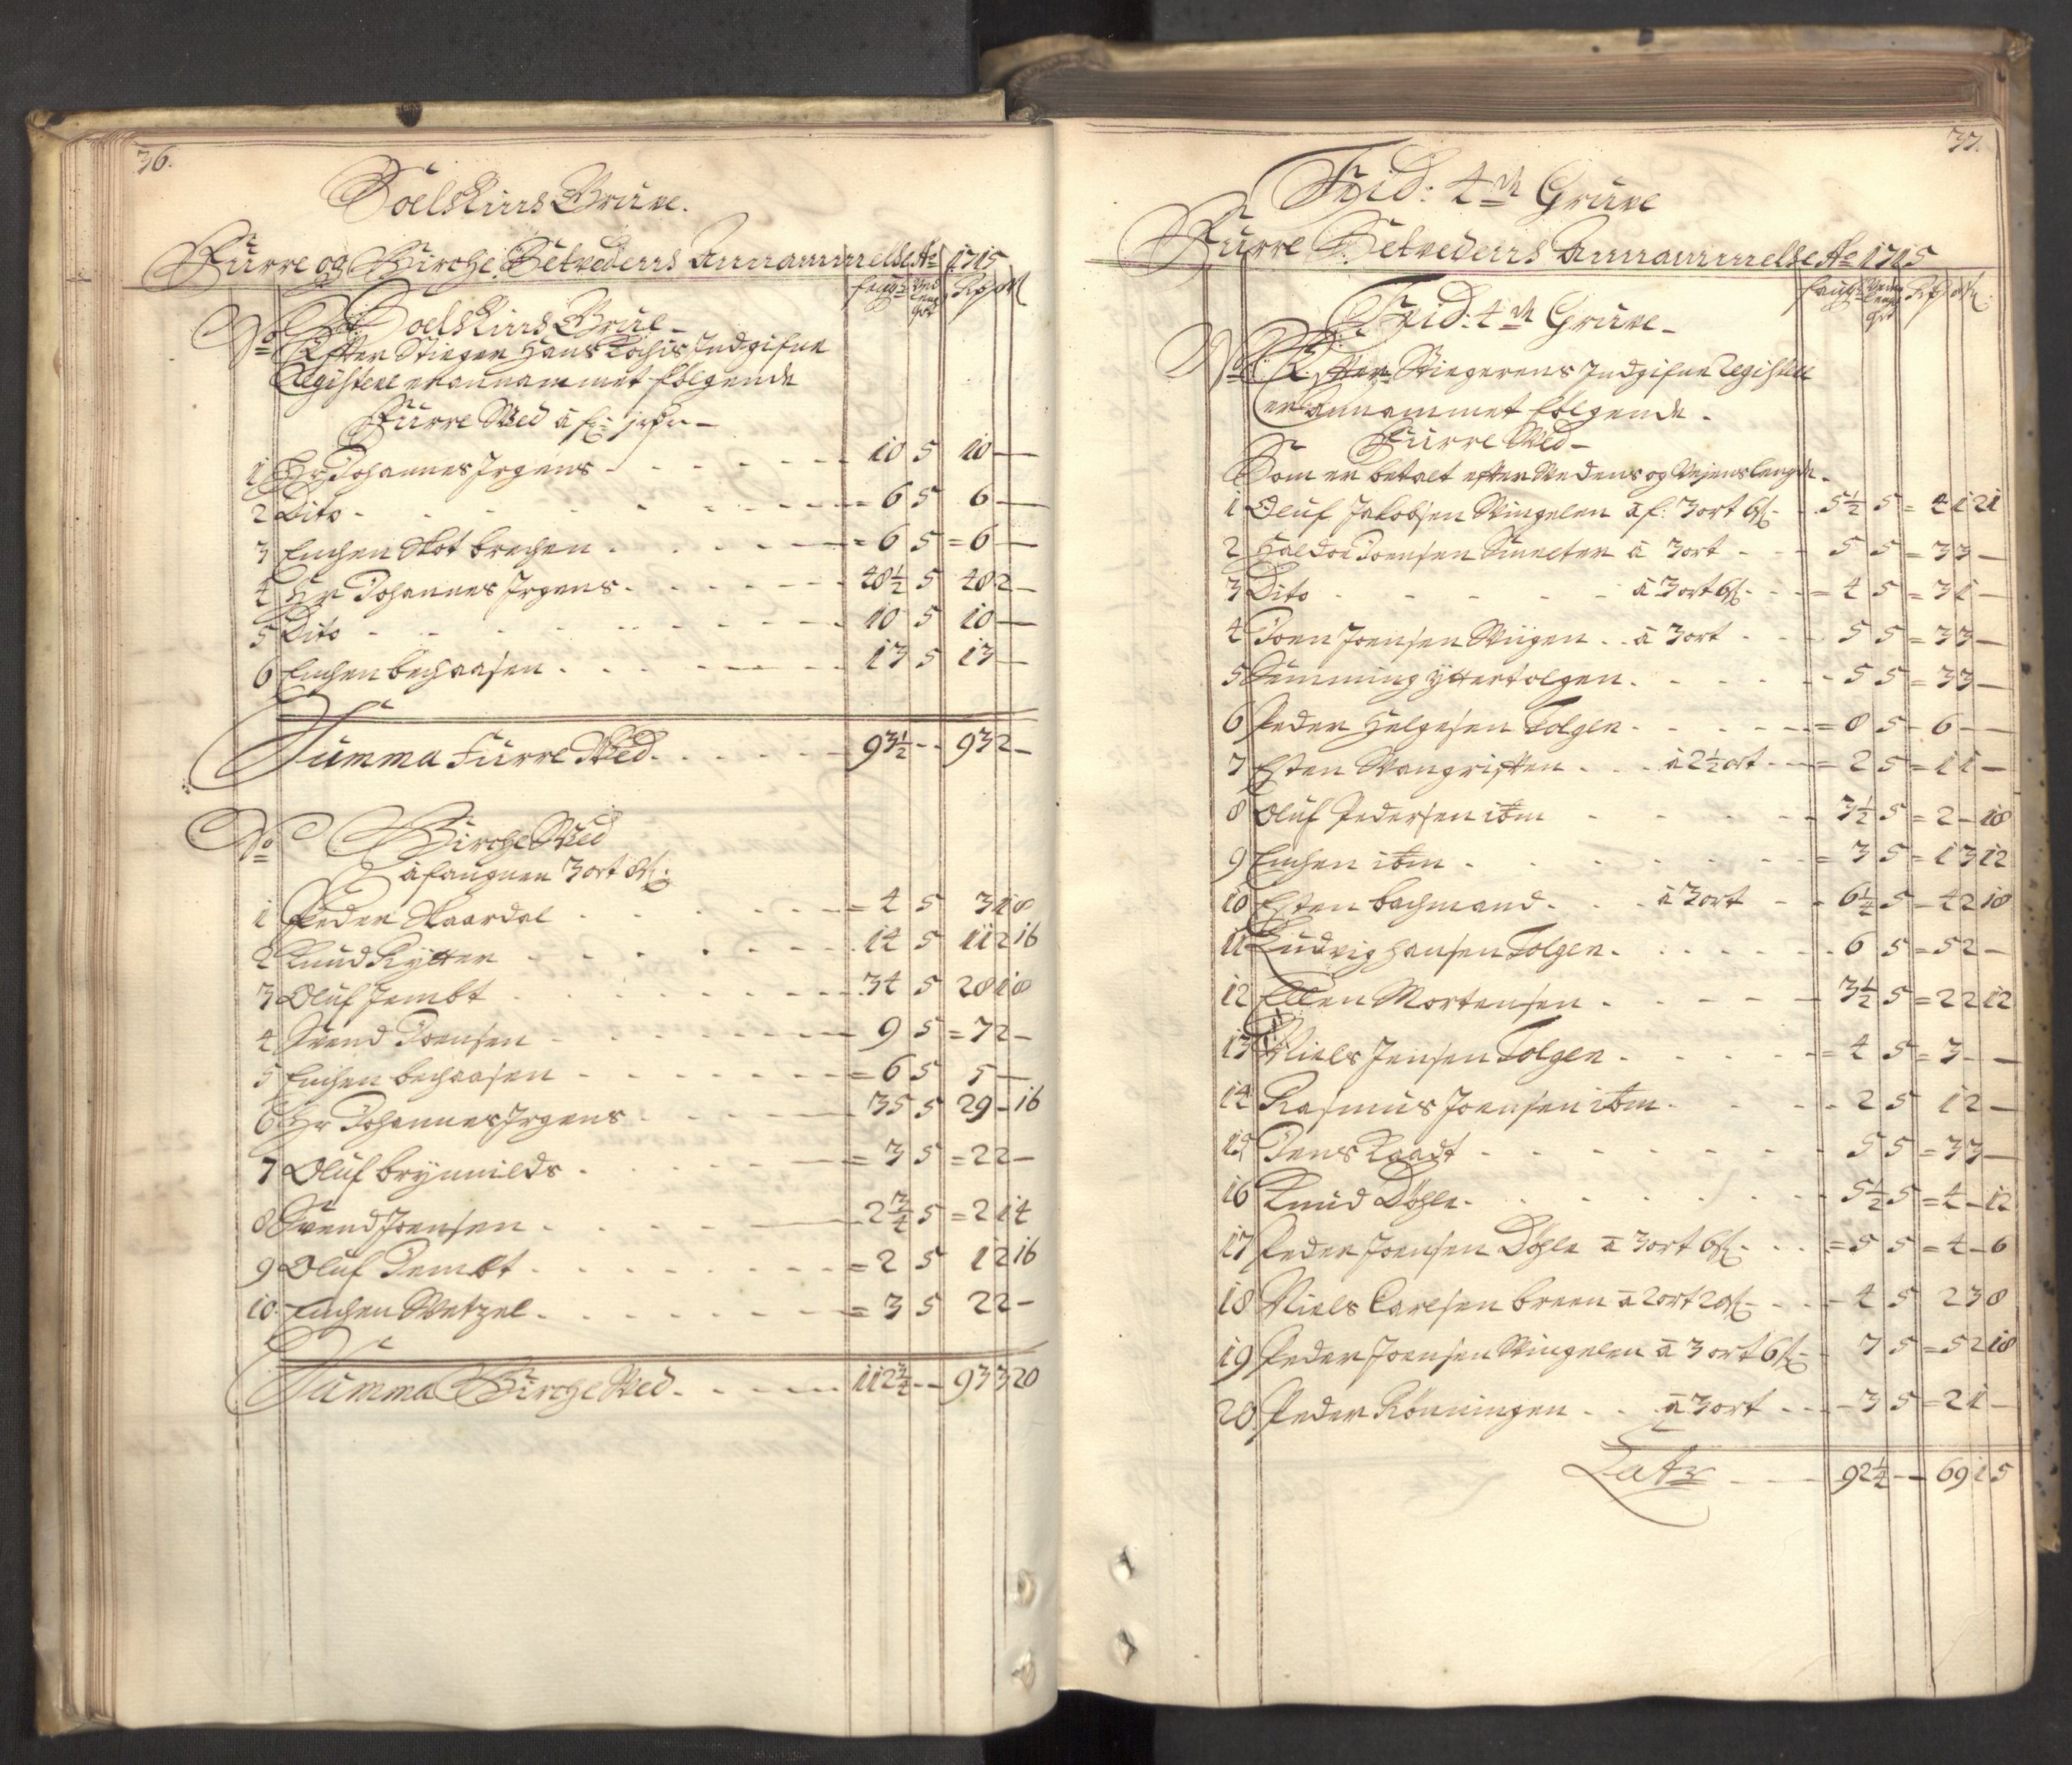 36.
Soelskins Grüve.
Fürre og Birche Setvedens Annammelse Ao 1715
faug: Ved lengde Rdr ort ß
Soelskins Grüe
No Efter Stiger Hans Kochs Indgifne
Registere er annammet følgende
Fürre Wed à f:
1 Hr Johannes Irgens - 10 5 10 -
2 Dito - 6 5 6 -
3 Enchen Kot brechen - 6 5 6 -
4 Hr Johannes Irgens - 48½ 5 48 2 -
5 Dito - 10 5 10 -
6 Enchen bechaasen - 13 5 13 -
Summa Furre Wed - 93½ - 93 2 -
No Birche Wed
à faugnen 3 ort 8 ß:
1 Peder Skaardal - 4 5 3 1 8
2 Knud Rytter - 14 5 11 2 16
3 Oluf Jembt - 34 5 28 1 8
4 Svend Joensen - 9 5 7 2 -
5 Enchen bechaasen - 6 5 5 -
6 Hr Johannes Irgens - 35 5 29 - 16
7 Oluf brynnilds - 3 5 2 2 -
8 Svend Joensen - 2¾ 5 2 1 4
9 Oluf Jembt - 2 5 1 2 16
10 Enchen Wetzel - 3 5 2 2 -
Summa Birche Wed - 112¾ - 93 3 20
37.
Frid: 4de Grüve
Fürre Setvedens Annammelse Ao 1715
faug: Vedens lengde Rdr ort ß:
Frid: 4de Grüve
No Efter Stigerens Indgifne Registere
er Annammet følgende.
Fürre Wed
Som er betalt efter Vedens og Vejens lengde.
1 Oluf Jakobsen Vingelen à f: 3 ort 6 ß - 5½ 5 4 1 21
2 Haldor Joensen Smelter à 3 ort - 5 5 3 3 -
3 Dito à 3 ort 6 ß - 4 5 3 1 -
4 Joen Joensen Wiigen à 3 ort - 5 5 3 3 -
5 Semming yttertolgen - 5 5 3 3 -
6 Peder Helgesen Tolgen - 8 5 6 -
7 Esten Vangrøften à 2½ ort - 2 5 1 1 -
8 Oluf Pedersen ibm - 3½ 5 2 - 18
9 Enchen ibm - 3 5 1 3 12
10 Esten bachmand à 3 ort - 6¼ 5 4 2 18
11 Ludvig hansen Tolgen - 6 5 5 2 -
12 Ellen Mortensen - 3½ 5 2 2 12
13 Niels Jensen Tolgen - 4 5 3 - -
14 Rasmus Joensen ibm - 2 5 1 2 -
15 Jens Kaadt - 5 5 3 3 -
16 Knud Døhle - 5½ 5 4 - 12
17 Peder Joensen Døhle à 3 ort 6 ß - 5 5 4 - 6
18 Niels Carlsen breen à 2 ort 20 ß - 4 5 2 3 8
19 Peder Joensen Vingelen à 3 ort 6 ß - 7 5 5 2 18
20 Peder Rønningen à 3 ort - 3 5 2 1 -
Latr - 92¼ - 69 1 5